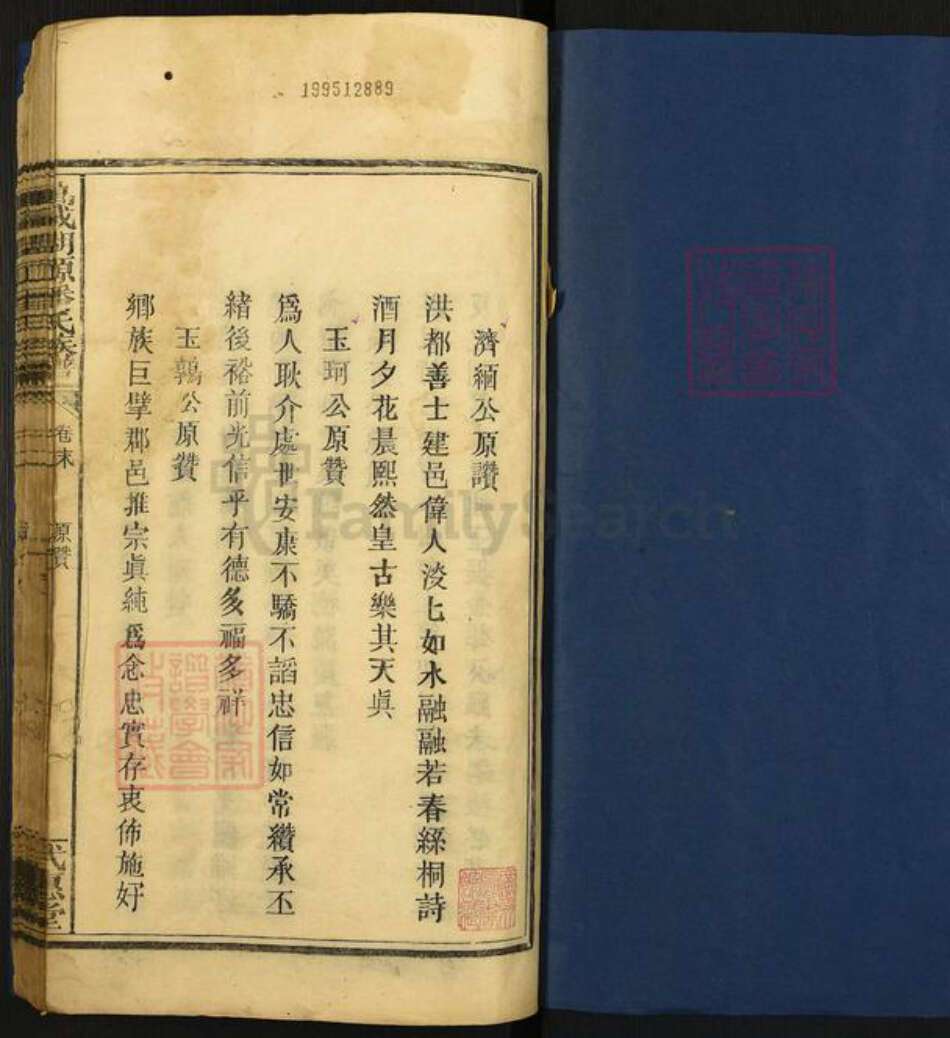 199512889
濟緬公原讚
洪都善士建邑偉人淡匕如水融融若春綠桐詩
酒月夕花晨熙然皇古樂其天眞
玉珂公原贊
爲人耿介處世安康不驕不諂忠信如常纘承丕
緒後裕前光信乎有德多福多祥
玉鶉公原贊
鄉族巨擘郡邑推宗眞純爲念忠實存衷佈施好
卷末
原贊
FamilySearch